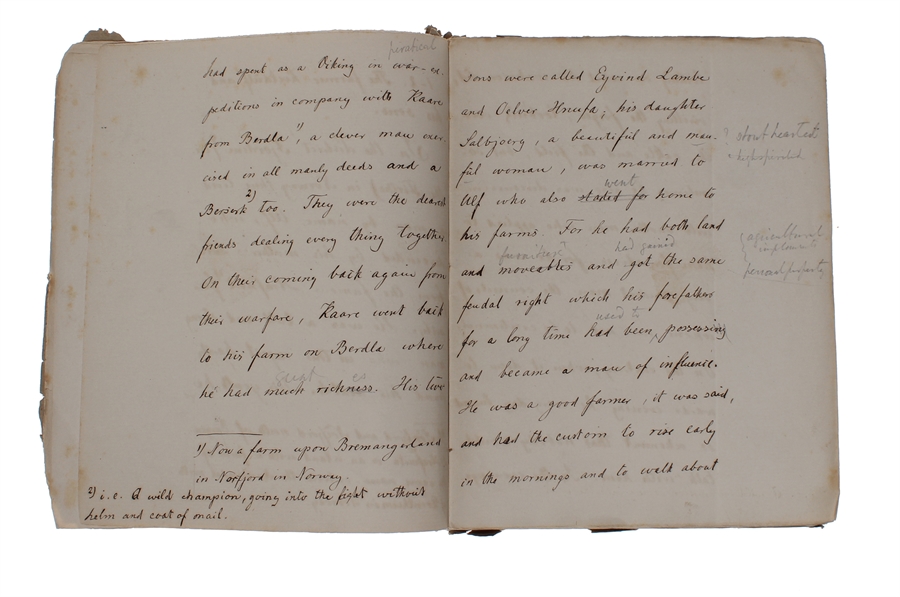 piratical
had spent as a Viking in war-ex-
peditions in company with Kaare
from Berdla 1), a clever man exer-
cised in all manly deeds and a
Berserk 2) too. They were the dearest
friends dealing every thing together
On their coming back again from
their warfare, Kaare went back
to his farm on Berdla where
great es
he had much richness. His two
1) Now a farm upon Bremangerland
in Norfjord in Norway.
2) i.e. a wild champion, going into the fight without
helm and coat of mail.
sons were called Eyvind Lambe
and Oelver Hnufa; his daughter
Salbjoerg, a beautiful and man-
? stout hearted
high spirited
ful woman, was married to
went
Ulf who also staded for home to
his farms. For he had both land
agricultural
implements
furniture? had gained
and moveables and got the same
personal property
feudal right which his forefathers
used to
for a long time had been possessing
and became a man of influence.
He was a good farmer, it was said,
and had the custom to rise early
in the mornings and to walk about